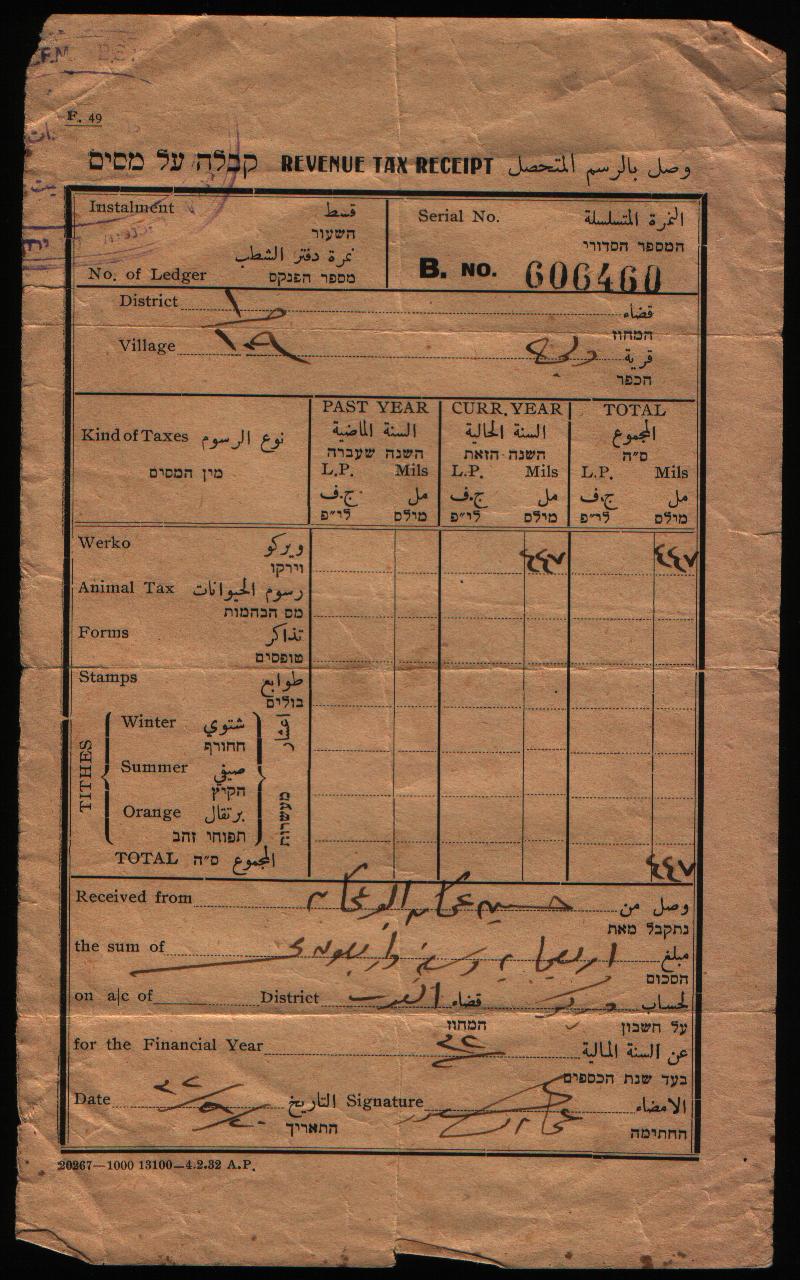 F. 49
קבלה על מסים REVENUE TAX RECEIPT وصل بالرسم المتحصل
Instalment قسط
השעור
نمرة دفتر الشطب
No. of Ledger מספר הפנקס
Serial No. النمرة المتسلسلة
המספר הסדורי
B. NO. 606460
District قضاء
המחוז
Village ١٠٩ قرية
הכפר
Kind of Taxes نوع الرسوم
מין המסים
PAST YEAR CURR. YEAR TOTAL
السنة الماضية السنة الحالية المجموع
השנה שעברה השנה הזאת ס"ה
L.P. Mils L.P. Mils L.P. Mils
ج.ف. مل ج.ف. مل ج.ف. مل
לי"פ מילס לי"פ מילס לי"פ מילס
Werko ويركو ٤٤٧ ٤٤٧
וירקו
Animal Tax رسوم الحيوانات
מס הבהמות
Forms تذاكر
טופסים
Stamps طوابع
בולים
TITHES
Winter شتوي
החורף
Summer صيفي
הקיץ
Orange برتقال
תפוחי זהב
اعشار
מעשרות
TOTAL ס"ה المجموع ٤٤٧
Received from حسين وصل من
נתקבל מאת
the sum of مبلغ
הסכום
on a/c of District القدس قضاء ويركو لحساب
המחוז על חשבון
for the Financial Year عن السنة المالية
בעד שנת הכספים
Date التاريخ Signature الامضاء
התאריך החתימה
20267—1000 13100—4.2.32 A.P.